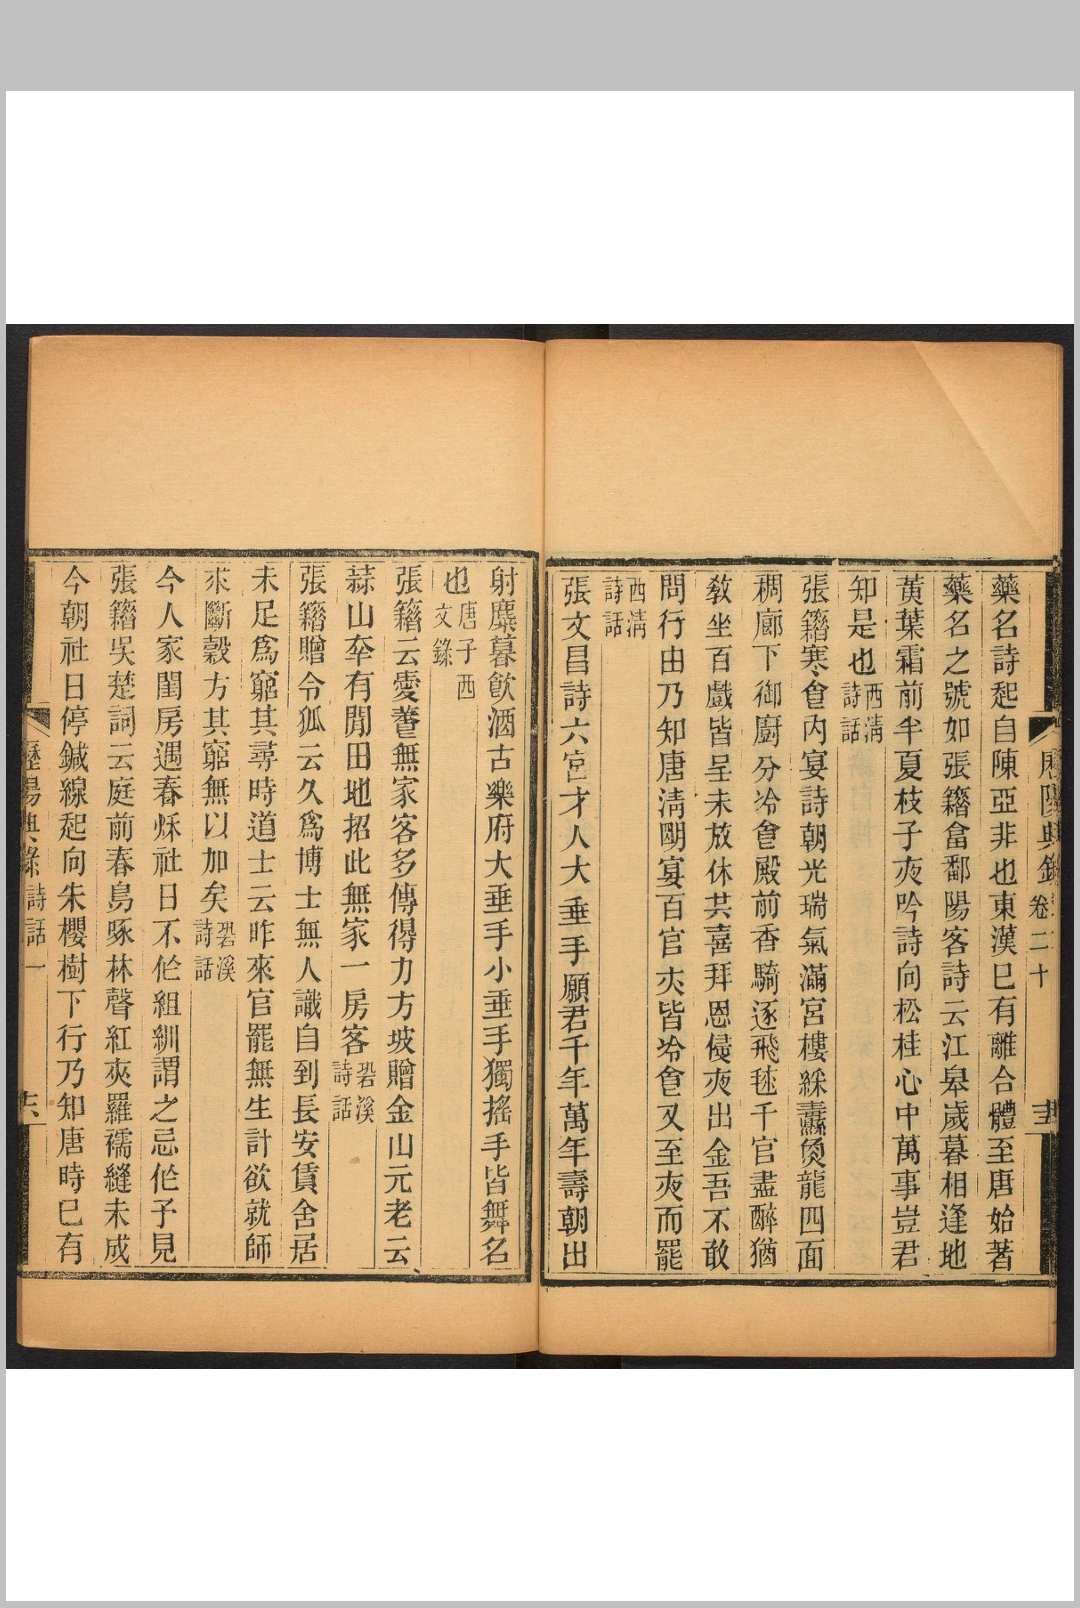 藥名詩起自陳亞非也東漢已有離合體至唐始著
藥名之號如張籍畣鄱陽客詩云江皋歲暮相逢地
黃葉霜前半夏枝子夜吟詩向松桂心中萬事豈君
知是也西清詩話
張籍寒食內宴詩朝光瑞氣滿宮樓綵纛㷟龍四面
稠廊下御廚分冷食殿前香騎逐飛毬千官盡醉猶
敎坐百戲皆呈未放休共喜拜恩侵夜出金吾不敢
問行由乃知唐淸明宴百官亦皆冷食又至夜而罷
西清詩話
張文昌詩六宮才人大垂手願君千年萬年壽朝出
射麋暮飮酒古樂府大垂手小垂手獨搖手皆舞名
也唐子西文錄
張籍云愛養無家客多傳得力方坡贈金山元老云
蒜山幸有閒田地招此無家一房客碧溪詩話
張籍贈令狐云久爲博士無人識自到長安賃舍居
未足爲窮其尋時道士云昨來官罷無生計欲就師
求斷穀方其窮無以加矣碧溪詩話
今人家閨房遇春秋社日不作組紃謂之忌作予見
張籍吳楚詞云庭前春鳥啄林聲紅夾羅襦縫未成
今朝社日停鍼線起向朱櫻樹下行乃知唐時已有
歷陽典錄 詩話一